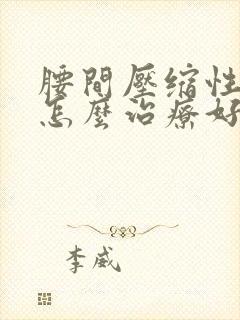 腰間壓縮性
怎麼治療好
李威